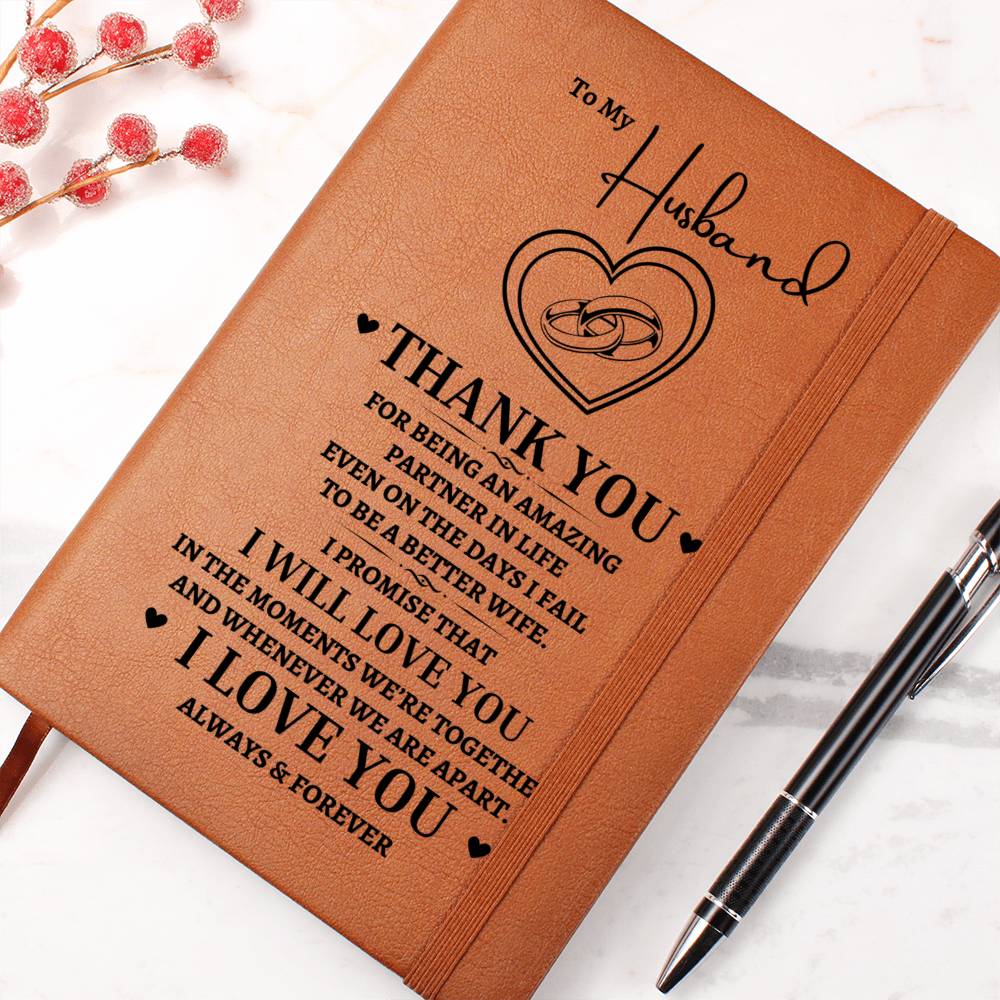 To My
Husband
THANK YOU
FOR BEING AN AMAZING
PARTNER IN LIFE
EVEN ON THE DAYS I FAIL
TO BE A BETTER WIFE.
I PROMISE THAT
I WILL LOVE YOU
IN THE MOMENTS WE'RE TOGETHE
AND WHENEVER WE ARE APART.
I LOVE YOU
ALWAYS & FOREVER